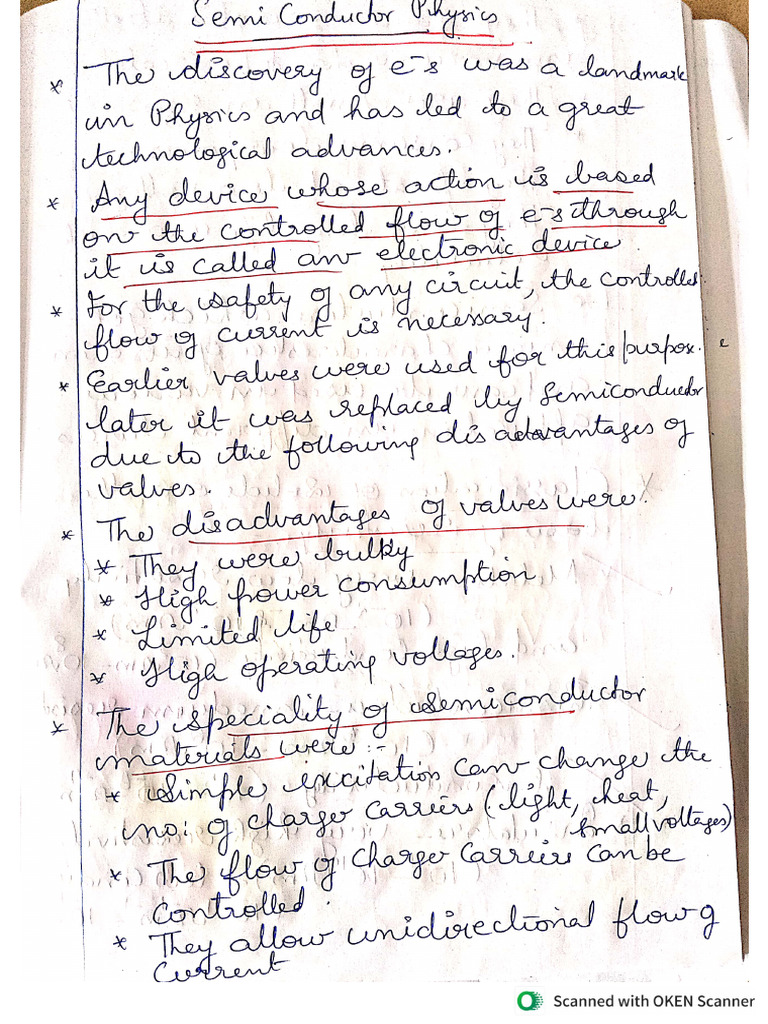 Semi Conductor Physics
* The discovery of e-s was a landmark
in Physics and has led to a great
technological advances.
* Any device whose action is based
on the controlled flow of e-s through
it is called an electronic device.
* For the safety of any circuit, the controlled
flow of current is necessary.
* Earlier valves were used for this purpose
later it was replaced by Semiconductor
due to the following disadvantages of
valves.
* The disadvantages of valves were:
* They were bulky
* High power consumption
* Limited life
* High operating voltages.
* The speciality of Semiconductor
materials were :-
* Simple excitation can change the
no: of charge carriers (light, heat,
small voltages)
* The flow of charge carriers can be
controlled.
* They allow unidirectional flow of
current
Scanned with OKEN Scanner